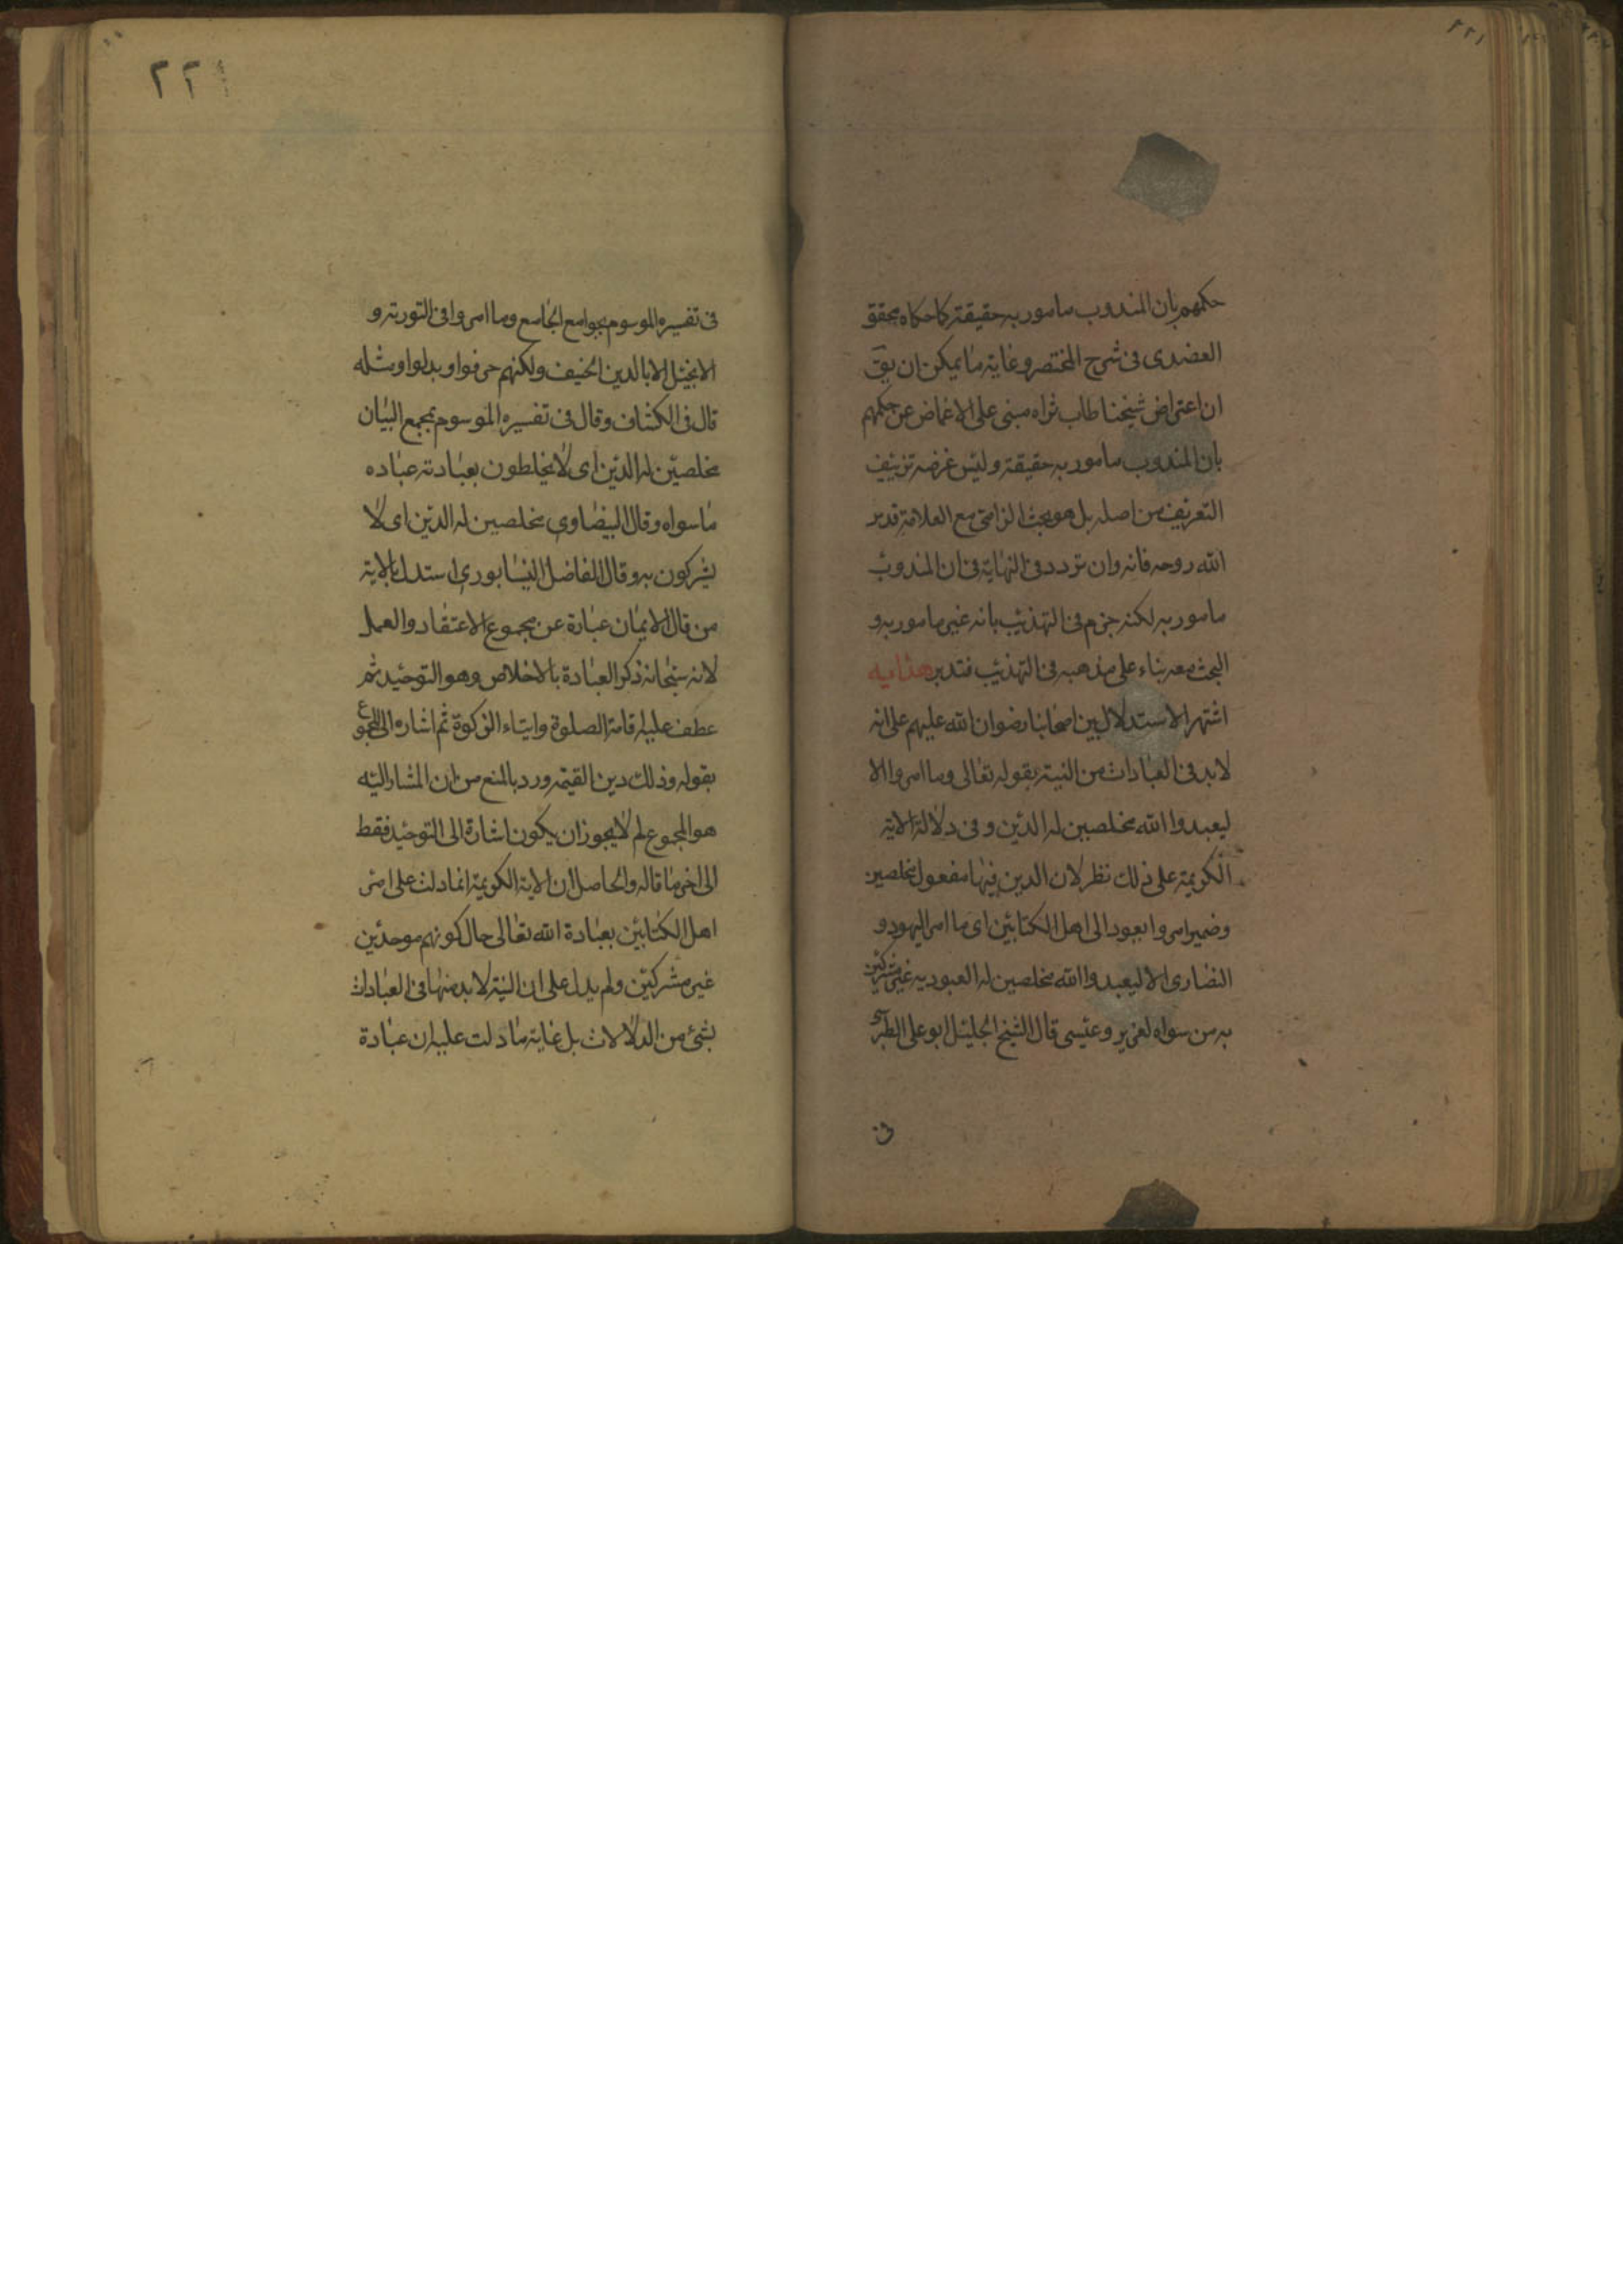 ٢٢١
حكمهم بان المندوب مامور به حقيقة كما حكاه محقق
العضدى فى شرح المختصر وغاية ما يمكن ان يق
ان اعتراض شيخنا طاب ثراه مبنى على الاغماض عن حكمهم
بان المندوب مامور به حقيقة وليس غرضه تزييف
التعريف من اصله بل هو بحث الزامى مع العلامة قدس
الله روحه فانه وان تردد فى النهاية فى ان المندوب
مامور به لكنه جزم فى التهذيب بانه غير مامور به و
البحث معه بناء على مذهبه فى التهذيب فتدبر هداية
اشتهر الاستدلال بين اصحابنا رضوان الله عليهم على انه
لابد فى العبادات من النية بقوله تعالى وما امروا الا
ليعبدوا الله مخلصين له الدين وفى دلالة الاية
الكريمة على ذلك نظر لان الدين فيها مفعول مخلصين
وضمير امروا يعود الى اهل الكتابين اى ما امر اليهود و
النصارى الا ليعبدوا الله مخلصين له العبودية غير مشركين
به من سواه لعزير وعيسى قال الشيخ الجليل ابو على الطبرسى
فى
٢٢١
فى تفسيره الموسوم بجوامع الجامع وما امروا فى التورية و
الانجيل الا بالدين الحنيف ولكنهم حرفوا وبدلوا ومثله
قال فى الكشاف وقال فى تفسيره الموسوم بمجمع البيان
مخلصين له الدين اى لا يخلطون بعبادته عباده
ما سواه وقال البيضاوى مخلصين له الدين اى لا
يشركون به وقال الفاضل النيسابورى استدل بالاية
من قال الايمان عبارة عن مجموع الاعتقاد والعمل
لانه سبحانه ذكر العبادة بالاخلاص وهو التوحيد ثم
عطف عليه اقامة الصلوة وايتاء الزكوة ثم اشاره الى المجموع
بقوله وذلك دين القيمه ورد بالمنع من ان المشار اليه
هو المجموع لم لا يجوز ان يكون اشارة الى التوحيد فقط
الى اخر ما قاله والحاصل ان الاية الكريمة انما دلت على امر
اهل الكتابين بعبادة الله تعالى حال كونهم موحدين
غير مشركين ولم يدل على ان النية لابد منها فى العبادات
بشئ من الدلالات بل غاية ما دلت عليه ان عبادة